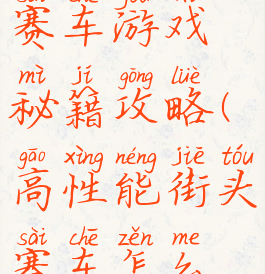 sài chē yóu xì
赛车游戏
mì jí gōng lüè
秘籍攻略(
gāo xìng néng jiē tóu
高性能街头
sài chē zěn me
赛车怎么